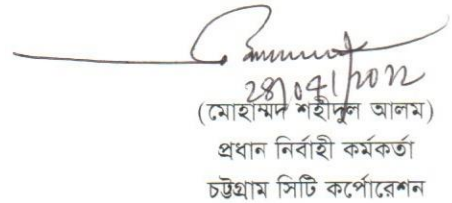 28/04/2022
(মোহাম্মদ শহীদুল আলম)
প্রধান নির্বাহী কর্মকর্তা
চট্টগ্রাম সিটি কর্পোরেশন